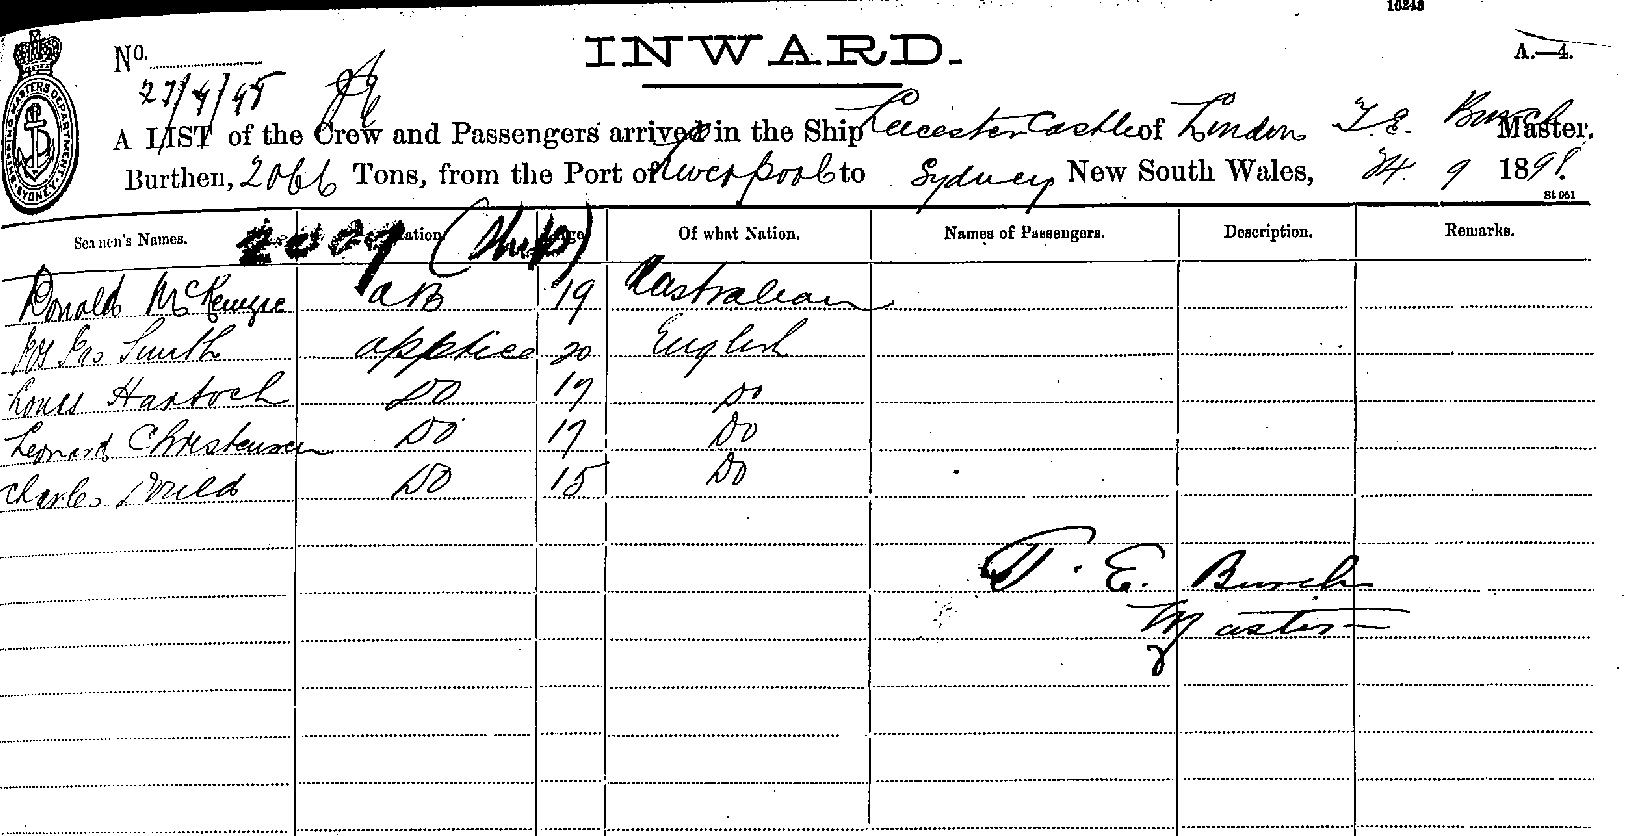 16243
INWARD.
A.—4.
No.
27/9/98
A LIST of the Crew and Passengers arrived in the Ship Leicester Castle of London T. E. Burch Master.
Burthen, 2066 Tons, from the Port of Liverpool to Sydney New South Wales, 24. 9 1898.
St 061
Seamen's Names. Of what Nation. Names of Passengers. Description. Remarks.
2009 (Ship)
Ronald McKenzie AB 19 Australian
Wm Geo Smith apptice 20 English
Louis Hartoch DO 17 DO
Leonard Christensen DO 17 DO
Charles DO 15 DO
T. E. Burch
Master